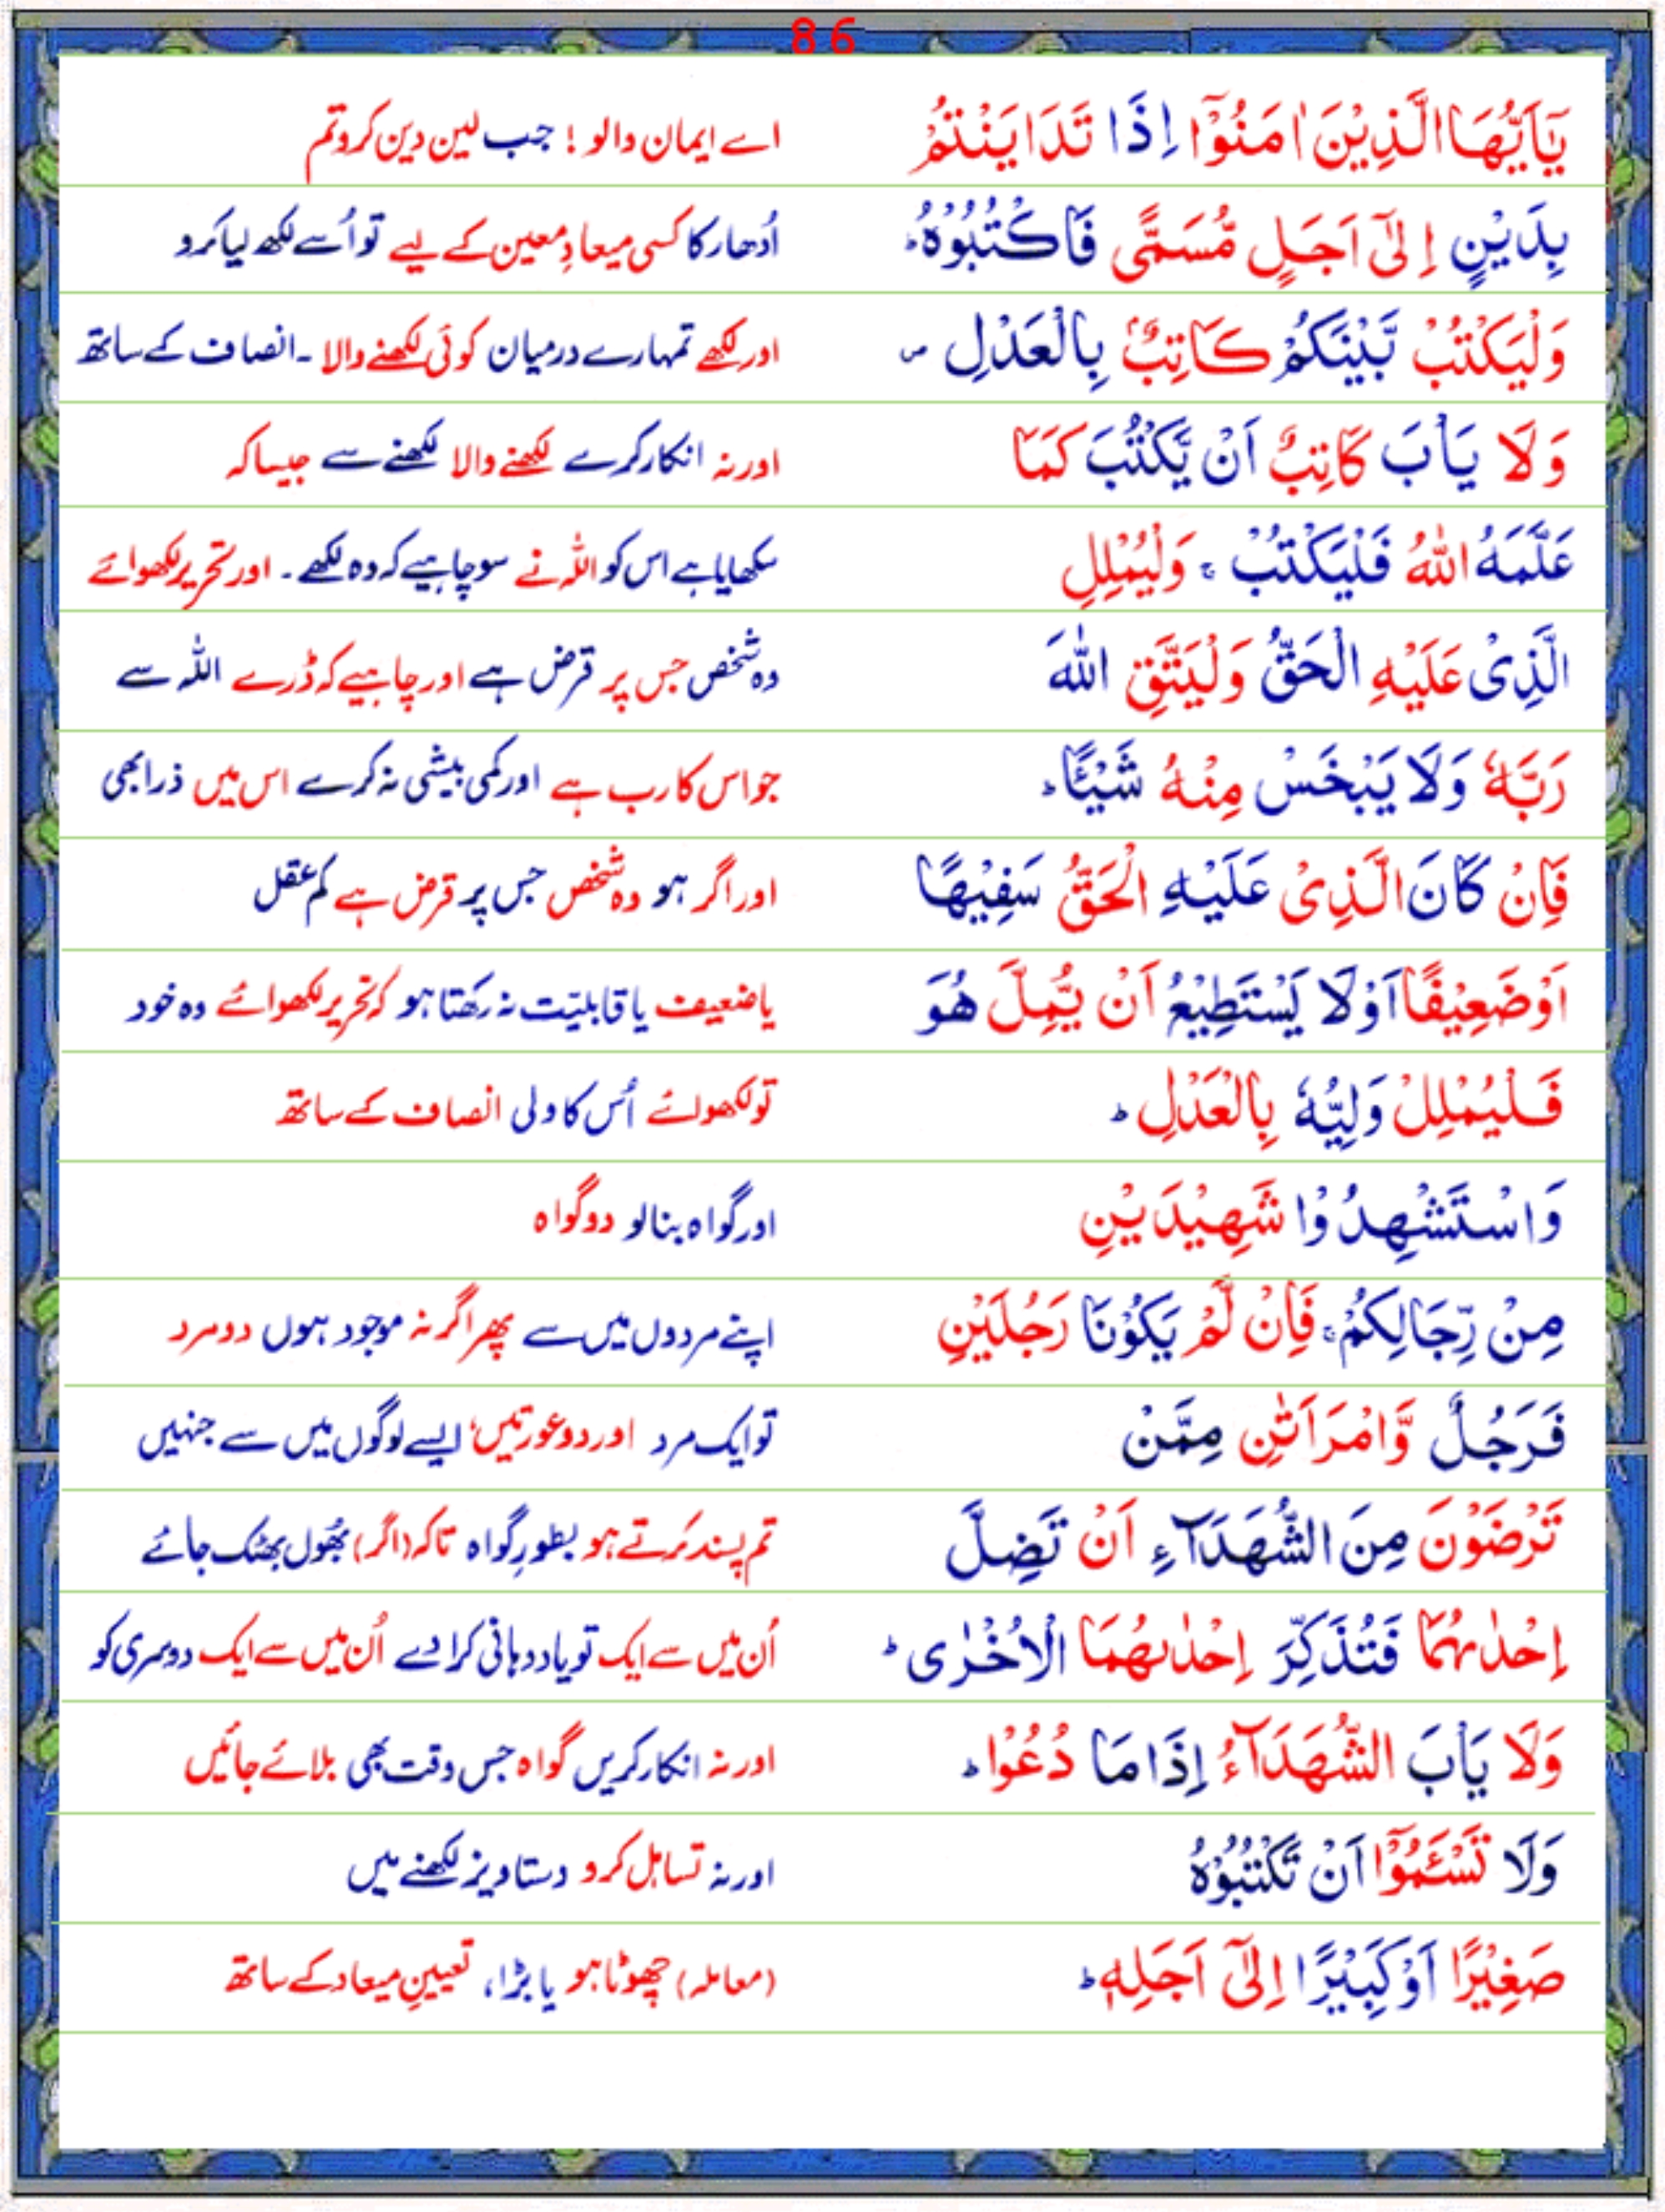 86
يَٰٓاَيُّهَا الَّذِيْنَ اٰمَنُوْٓا اِذَا تَدَايَنْتُمْ اے ایمان والو ! جب لین دین کرو تم
بِدَيْنٍ اِلٰٓى اَجَلٍ مُّسَمًّى فَاكْتُبُوْهُ ؕ اُدھار کا کسی میعادِ معین کے لیے تو اُسے لکھ لیا کرو
وَلْيَكْتُبْ بَّيْنَكُمْ كَاتِبٌۢ بِالْعَدْلِ ۪ اور لکھے تمہارے درمیان کوئی لکھنے والا ۔ انصاف کے ساتھ
وَلَا يَاْبَ كَاتِبٌ اَنْ يَّكْتُبَ كَمَا اور نہ انکار کرے لکھنے والا لکھنے سے جیسا کہ
عَلَّمَهُ اللّٰهُ فَلْيَكْتُبْ ۚ وَلْيُمْلِلِ سکھایا ہے اس کو اللہ نے سو چاہیے کہ وہ لکھے ۔ اور تحریر لکھوائے
الَّذِىْ عَلَيْهِ الْحَقُّ وَلْيَتَّقِ اللّٰهَ وہ شخص جس پر قرض ہے اور چاہیے کہ ڈرے اللہ سے
رَبَّهٗ وَلَا يَبْخَسْ مِنْهُ شَيْـًٔا ؕ جو اس کا رب ہے اور کمی بیشی نہ کرے اس میں ذرا بھی
فَاِنْ كَانَ الَّذِىْ عَلَيْهِ الْحَقُّ سَفِيْهًا اور اگر ہو وہ شخص جس پر قرض ہے کم عقل
اَوْ ضَعِيْفًا اَوْ لَا يَسْتَطِيْعُ اَنْ يُّمِلَّ هُوَ یا ضعیف یا قابلیّت نہ رکھتا ہو کہ تحریر لکھوائے وہ خود
فَلْيُمْلِلْ وَلِيُّهٗ بِالْعَدْلِ ؕ تو لکھوائے اُس کا ولی انصاف کے ساتھ
وَاسْتَشْهِدُوْا شَهِيْدَيْنِ اور گواہ بنالو دو گواہ
مِنْ رِّجَالِكُمْ ۚ فَاِنْ لَّمْ يَكُوْنَا رَجُلَيْنِ اپنے مردوں میں سے پھر اگر نہ موجود ہوں دو مرد
فَرَجُلٌ وَّامْرَاَتٰنِ مِمَّنْ تو ایک مرد اور دو عورتیں' ایسے لوگوں میں سے جنہیں
تَرْضَوْنَ مِنَ الشُّهَدَآءِ اَنْ تَضِلَّ تم پسند کرتے ہو بطورِ گواہ تاکہ (اگر) بھُول بھٹک جائے
اِحْدٰىهُمَا فَتُذَكِّرَ اِحْدٰىهُمَا الْاُخْرٰى ؕ اُن میں سے ایک تو یاد دہانی کرا دے اُن میں سے ایک دوسری کو
وَلَا يَاْبَ الشُّهَدَآءُ اِذَا مَا دُعُوْا ؕ اور نہ انکار کریں گواہ جس وقت بھی بلائے جائیں
وَلَا تَسْـَٔمُوْٓا اَنْ تَكْتُبُوْهُ اور نہ تساہل کرو دستاویز لکھنے میں
صَغِيْرًا اَوْ كَبِيْرًا اِلٰٓى اَجَلِهٖ ؕ (معاملہ) چھوٹا ہو یا بڑا، تعیینِ میعاد کے ساتھ